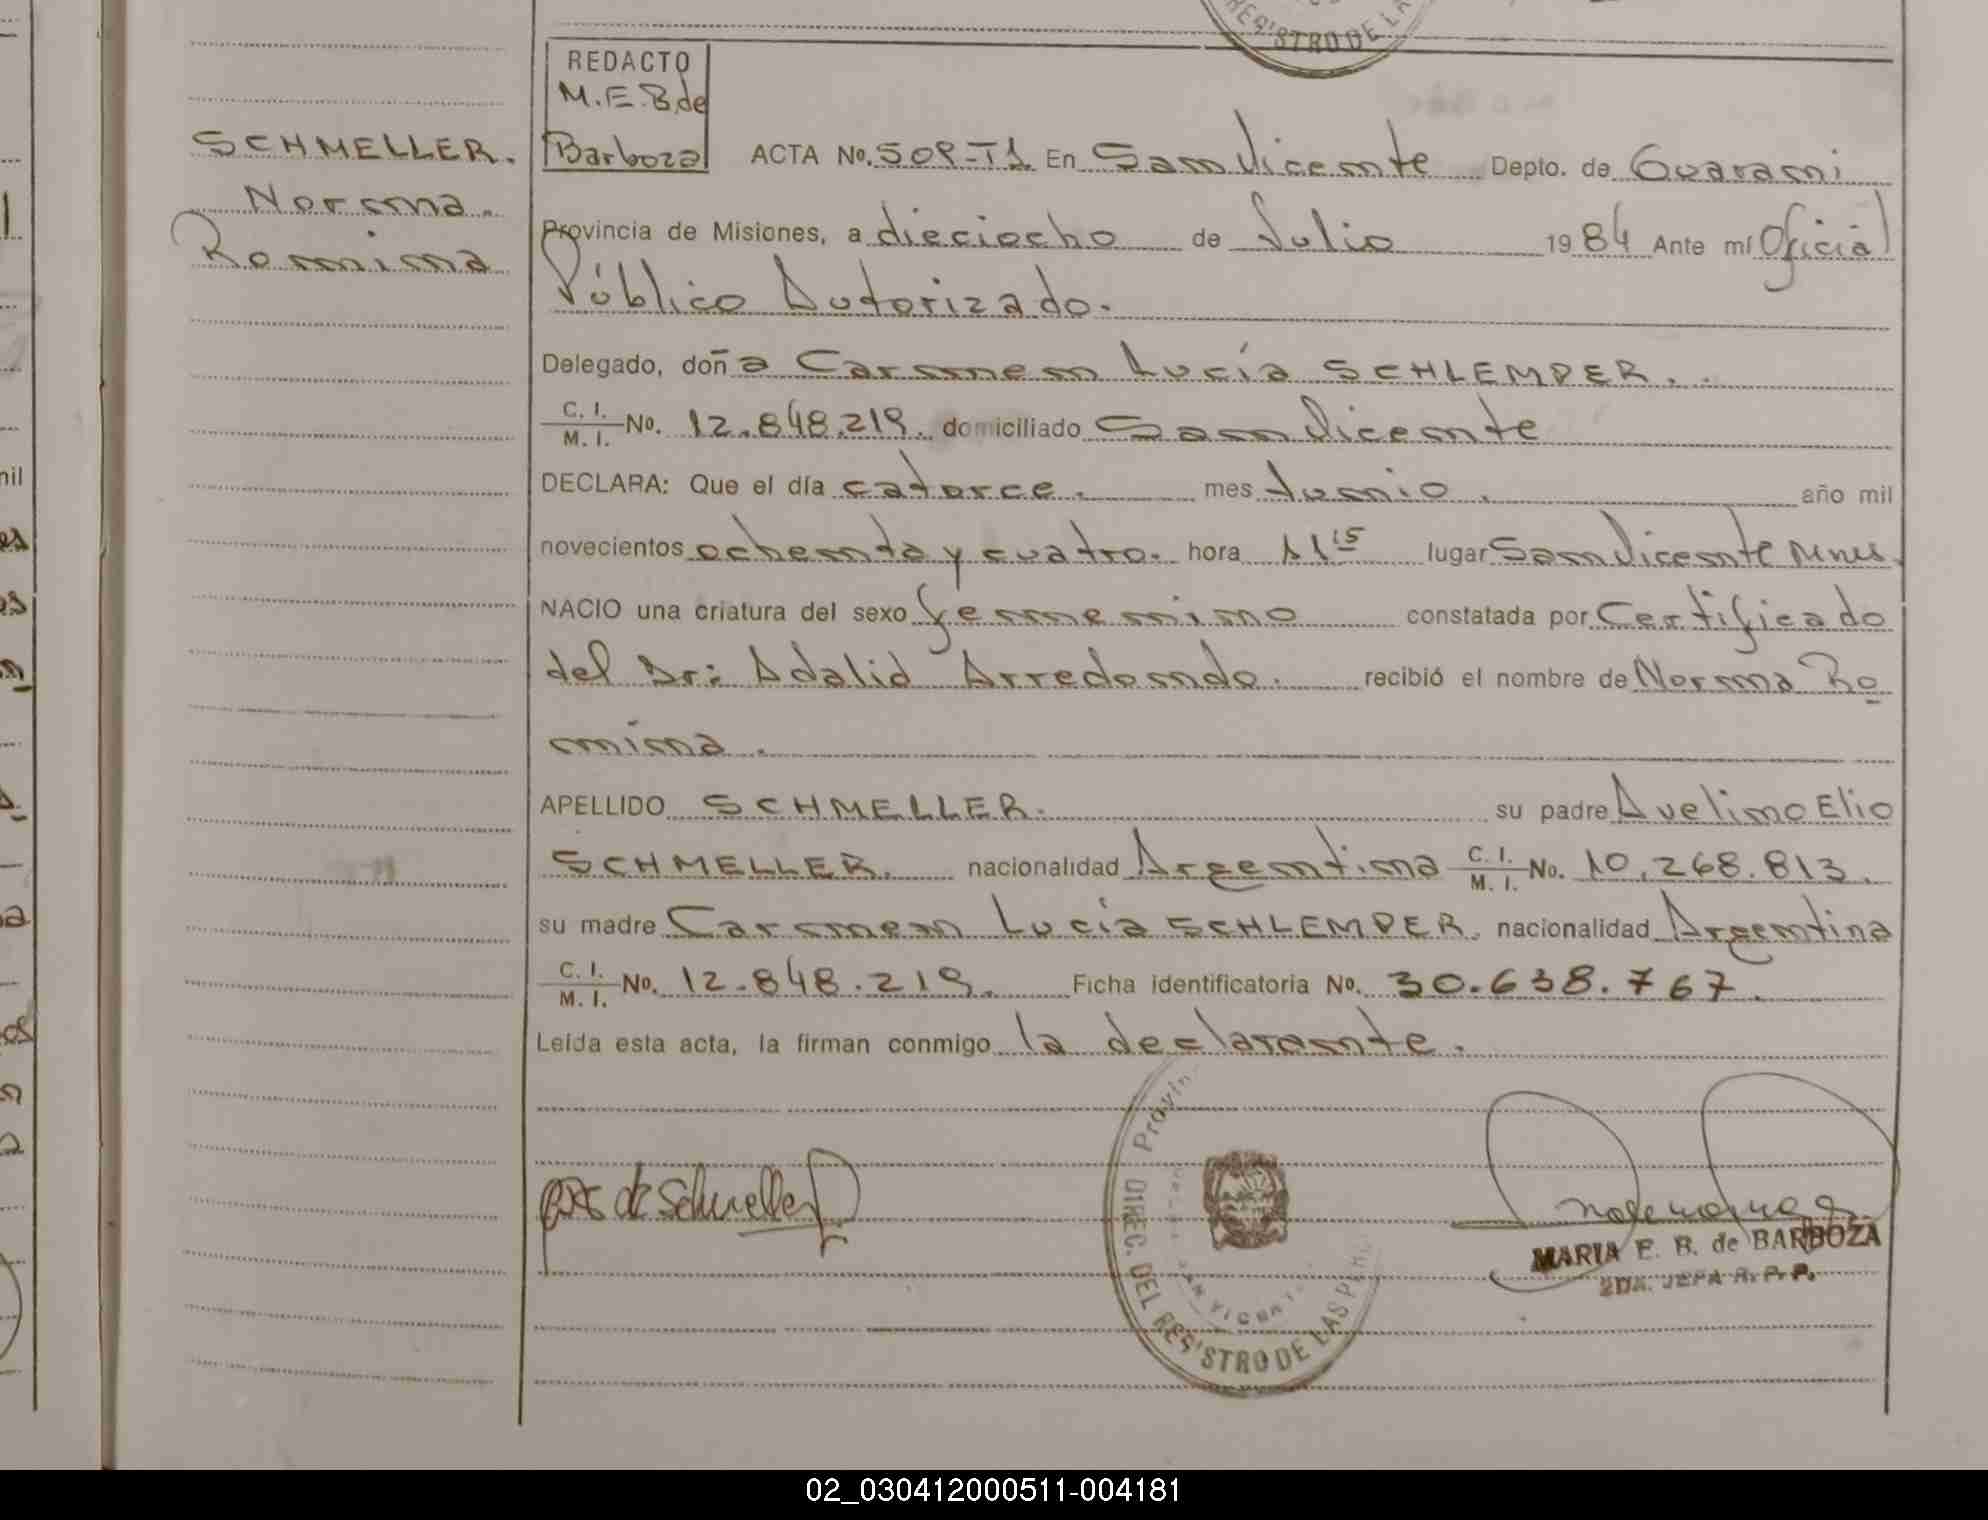 REGISTRO DE LA
REDACTO
M.E.B. de
Barboza
SCHMELLER.
Norma.
Romina
ACTA No. 509-T1 En San Vicente Depto. de Guarani
Provincia de Misiones, a dieciocho de Julio 1984 Ante mí Oficial
Público Autorizado.
Delegado, doña Carmen Lucía SCHLEMPER.
C. I. / M. I. No. 12.848.219. domiciliado San Vicente
DECLARA: Que el día catorce. mes Junio. año mil
novecientos ochenta y cuatro. hora 11 15 lugar San Vicente Mnes.
NACIO una criatura del sexo femenino constatada por Certificado
del Dr: Adalid Arredondo. recibió el nombre de Norma Ro
mina.
APELLIDO SCHMELLER. su padre Avelino Elio
SCHMELLER. nacionalidad Argentina C. I. / M. I. No. 10.268.813.
su madre Carmen Lucía SCHLEMPER. nacionalidad Argentina
C. I. / M. I. No. 12.848.219. Ficha identificatoria No. 30.638.767.
Leída esta acta, la firman conmigo la declarante.
de Schmeller
Provin
DIREC. DEL REGISTRO DE LAS PER
SAN VICENT
MARIA E. B. de BARBOZA
2DA. JEFA R. P. P.
02_030412000511-004181